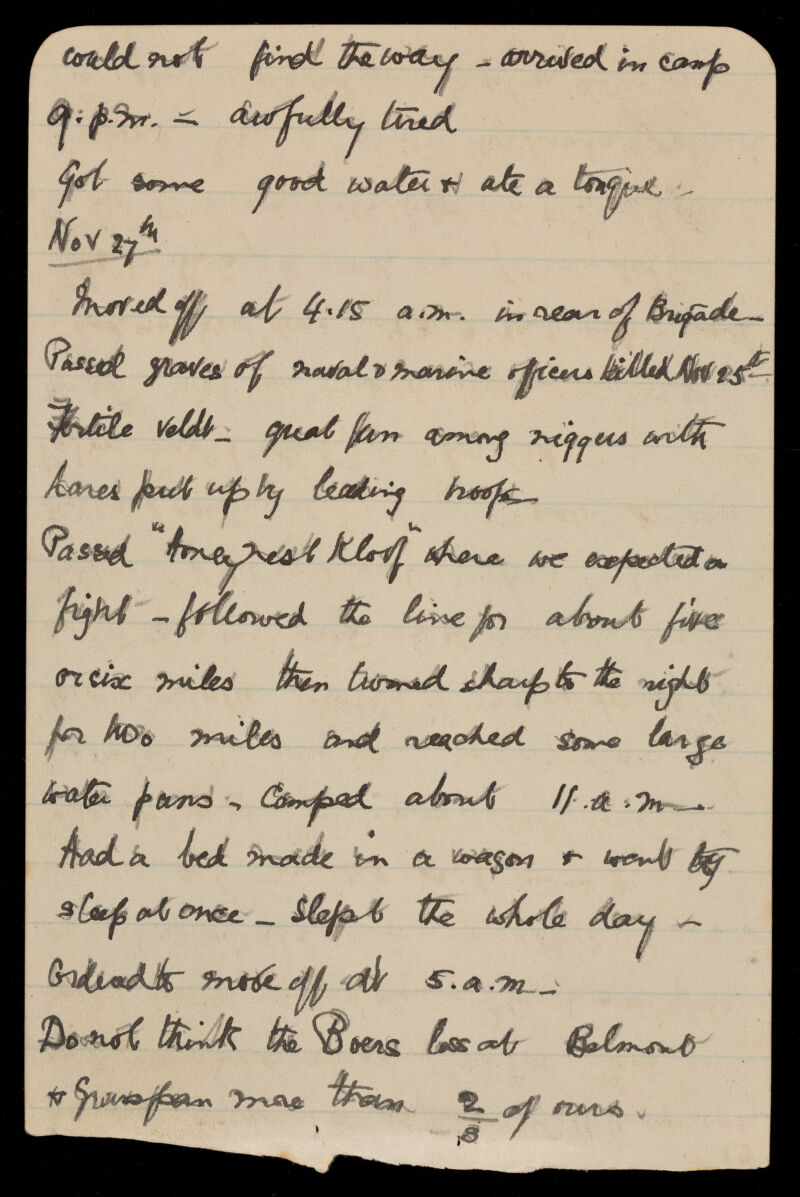 could not find the way - arrived in camp
9. p.m. - awfully tired
Got some good water & ate a tongue -
Nov 27th
Moved off at 4.15 a.m. in rear of Brigade -
Passed graves of naval & marine officers killed Nov 25th
Fertile veldt - great fun among niggers with
hares put up by leading troops -
Passed "Honeynest Kloof" where we expected a
fight - followed the line for about five
or six miles then turned sharp to the right
for two miles and reached some large
water pans - Camped about 11.a.m -
Had a bed made in a wagon & went to
sleep at once - Slept the whole day -
Ordered to move off at 5.a.m -
Do not think the Boers loss at Belmont
& Graspan more than 2/3 of ours.